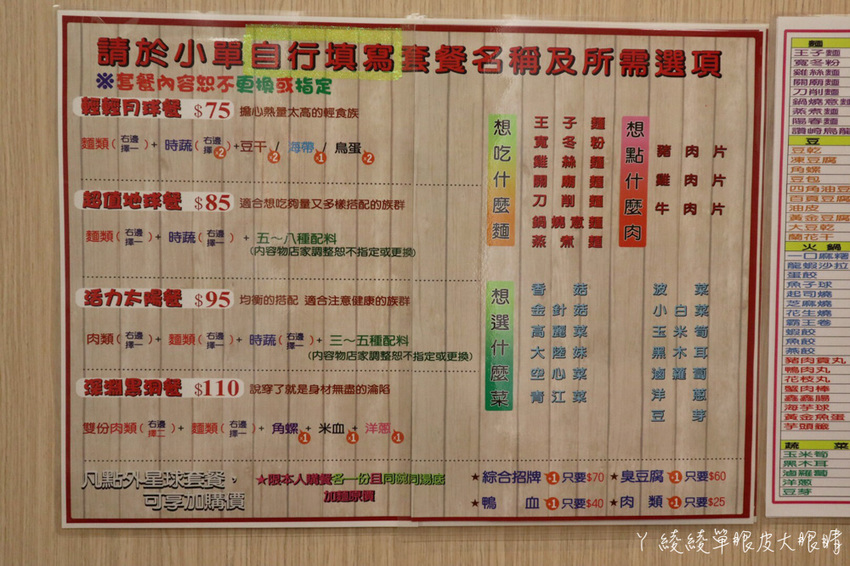 請於小單自行填寫套餐名稱及所需選項
※套餐內容恕不更換或指定
輕輕月球餐 $75 擔心熱量太高的輕食族
麵類(右邊擇一)+ 時蔬(右邊擇一)2+豆干2/ 海帶1/ 鳥蛋2
超值地球餐 $85 適合想吃夠量又多樣搭配的族群
麵類(右邊擇一)+ 時蔬(右邊擇一)+ 五～八種配料
(內容物店家調整恕不指定或更換)
活力太陽餐 $95 均衡的搭配 適合注意健康的族群
肉類(右邊擇一)+ 麵類(右邊擇一)+ 時蔬(右邊擇一)+ 三～五種配料
(內容物店家調整恕不指定或更換)
深淵黑洞餐 $110 說穿了就是身材無盡的淪陷
雙份肉類(右邊擇二)+ 麵類(右邊擇一)+ 角螺1+ 米血1+ 洋蔥1
凡點外星球套餐，
可享加購價
★限本人購餐各一份且同碗同湯底
加麵原價
★綜合招牌1只要$70 ★臭豆腐1只要$60
★鴨 血1只要$40 ★肉 類1只要$25
想吃什麼麵
王子麵
寬冬粉
雞絲麵
關廟麵
刀削麵
鍋燒意麵
蒸煮麵
想點什麼肉
豬肉片
雞肉片
牛肉片
想選什麼菜
香菇
金針菇
高麗菜
大陸妹
空心菜
青江菜
菠菜
小白菜
玉米筍
黑木耳
滷蘿蔔
洋蔥
豆芽
麵
王子麵
寬冬粉
雞絲麵
關廟麵
刀削麵
鍋燒意麵
蒸煮麵
陽春麵
讚崎烏龍
豆
豆乾
凍豆腐
角螺
豆包
四角油豆
百頁豆腐
油皮
黃金豆腐
大豆乾
蘭花干
火鍋
一口麻糬
龍蝦沙拉
蛋餃
魚子球
起司燒
芝麻燒
花生燒
霸王卷
蝦餃
魚餃
燕餃
豬肉貢丸
鴨肉丸
花枝丸
蟹肉棒
鑫鑫腸
海芋球
黃金魚蛋
芋頭餃
蔬菜
玉米筍
黑木耳
滷蘿蔔
洋蔥
豆芽
ㄚ綾綾單眼皮大眼睛